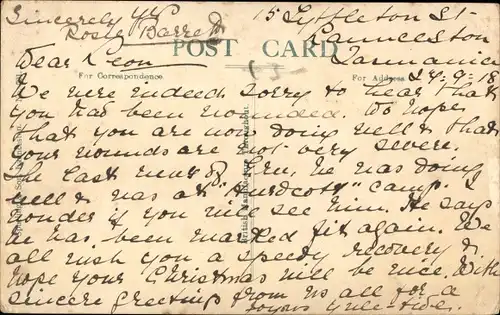 Sincerely Yrs
Rosie Barrett
15 Lyttleton St
Launceston
Tasmania
24-9-18
POST CARD
For Correspondence.
For Address.
British Manufacture Throughout.
Dear Leon
We were indeed sorry to hear that
you had been wounded. We hope
that you are now doing well & that
your wounds are not very severe.
The last news of Ern, he was doing
well & was at "Hurdcott" camp. I
wonder if you will see him. He says
he has been marked fit again. We
all wish you a speedy recovery &
hope your Christmas will be nice. With
sincere greetings from us all for a
joyous Yule-tide.